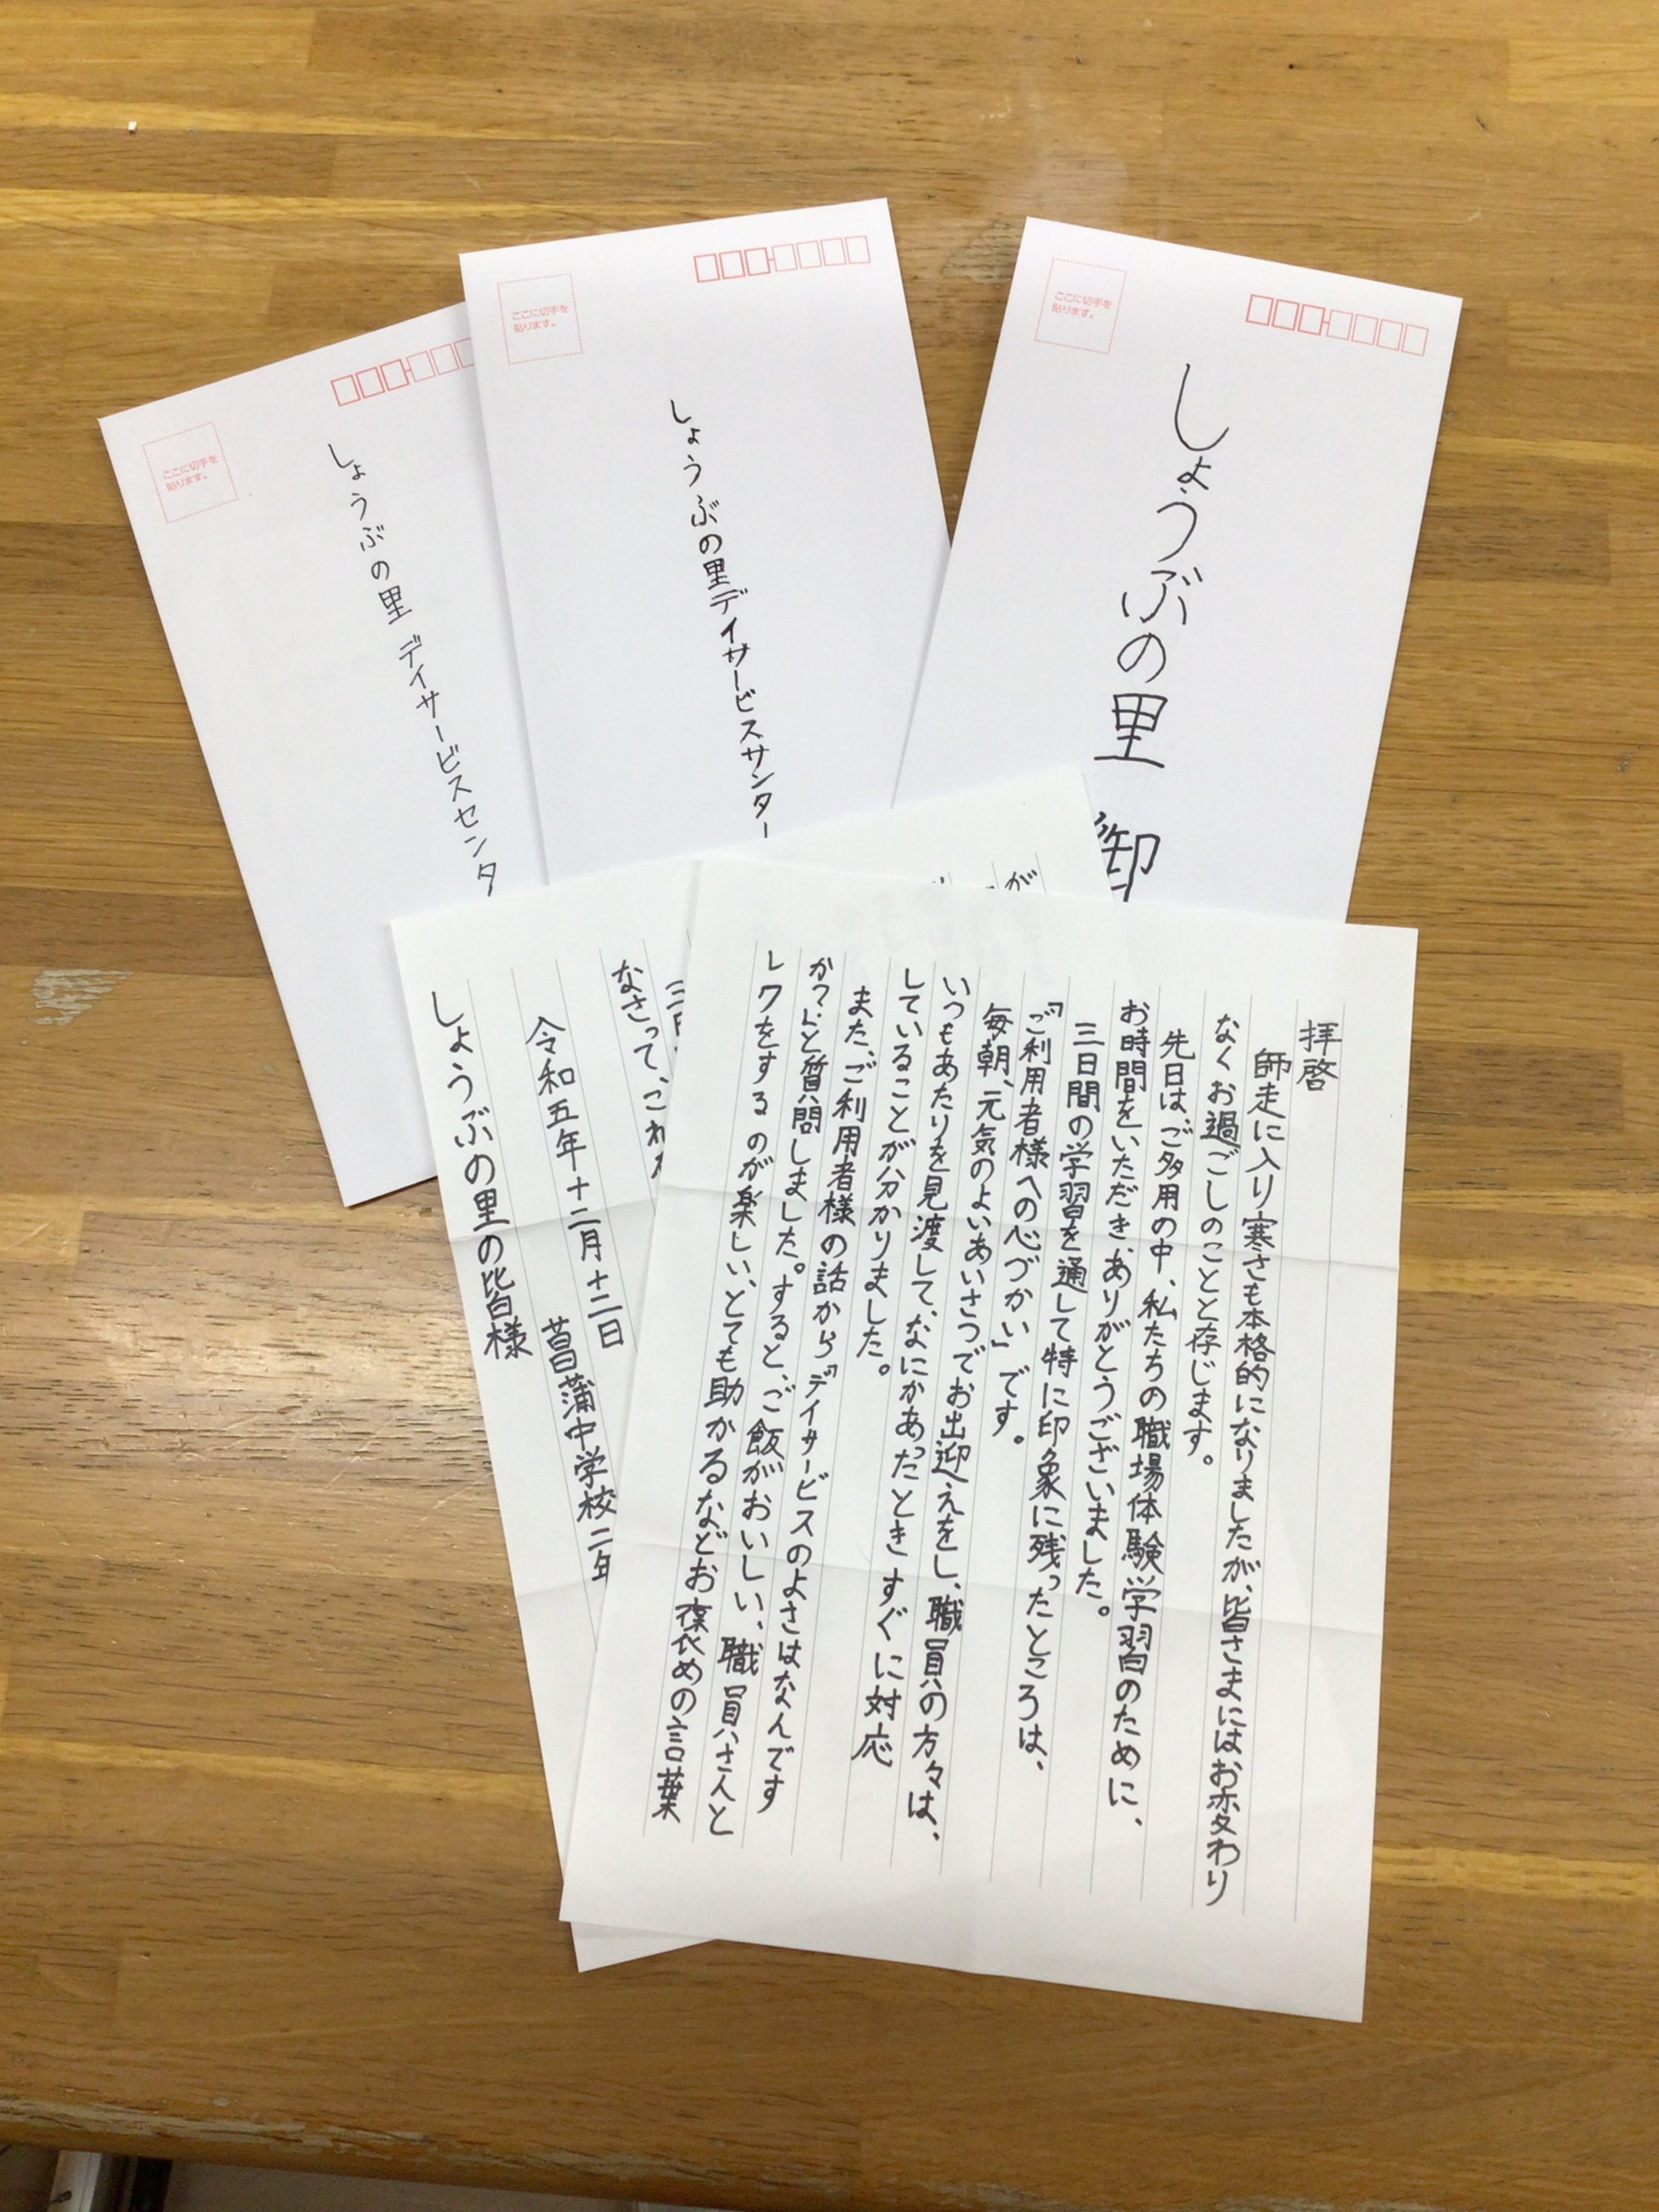 ここに切手を
貼ります。
しょうぶの里デイサービスセンタ
ここに切手を
貼ります。
しょうぶの里デイサービスサンター
ここに切手を
貼ります。
しょうぶの里 御
拝啓
師走に入り寒さも本格的になりましたが、皆さまにはお変わり
なくお過ごしのことと存じます。
先日は、ご多用の中、私たちの職場体験学習のために、
お時間をいただき、ありがとうございました。
三日間の学習を通して特に印象に残ったところは、
『ご利用者様への心づかい』です。
毎朝、元気のよいあいさつでお出迎えをし、職員の方々は、
いつもあたりを見渡して、なにかあったときすぐに対応
していることが分かりました。
また、ご利用者様の話から『デイサービスのよさはなんです
か？』と質問しました。すると、ご飯がおいしい、職員さんと
レクをするのが楽しい、とても助かるなどお褒めの言葉
が
なさって、これ
令和五年十二月十二日
菖蒲中学校二年
しょうぶの里の皆様